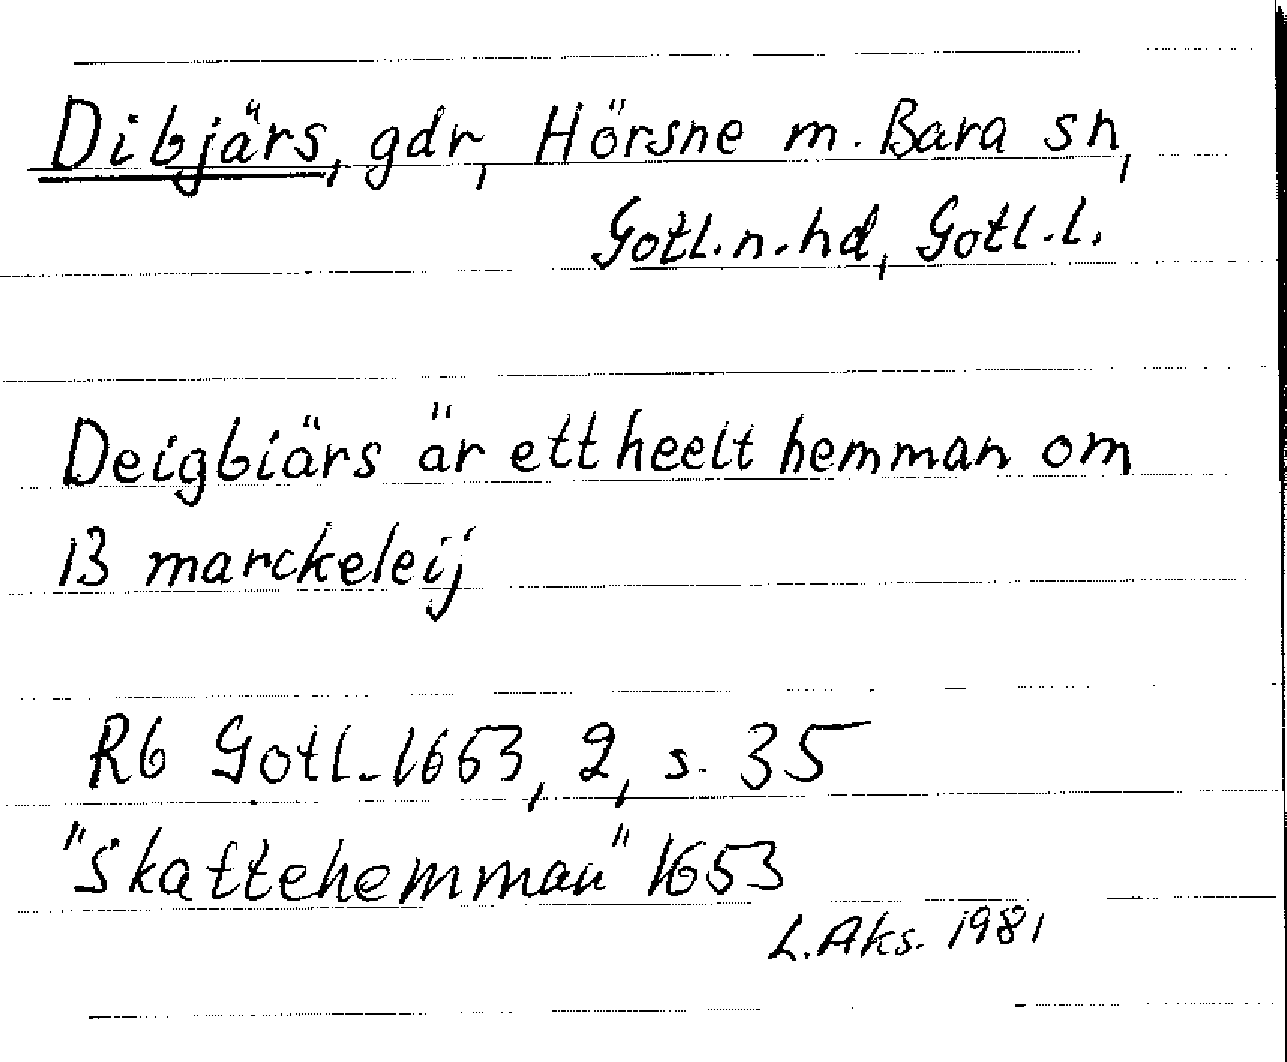 Dibjärs, gdr, Hörsne m. Bara sn,
Gotl. n. hd, Gotl. l.
Deigbiärs är ett heelt hemman om
13 marckeleij
Rb Gotl. 1653, 2, s. 35
"Skattehemman" 1653
L. Aks. 1981